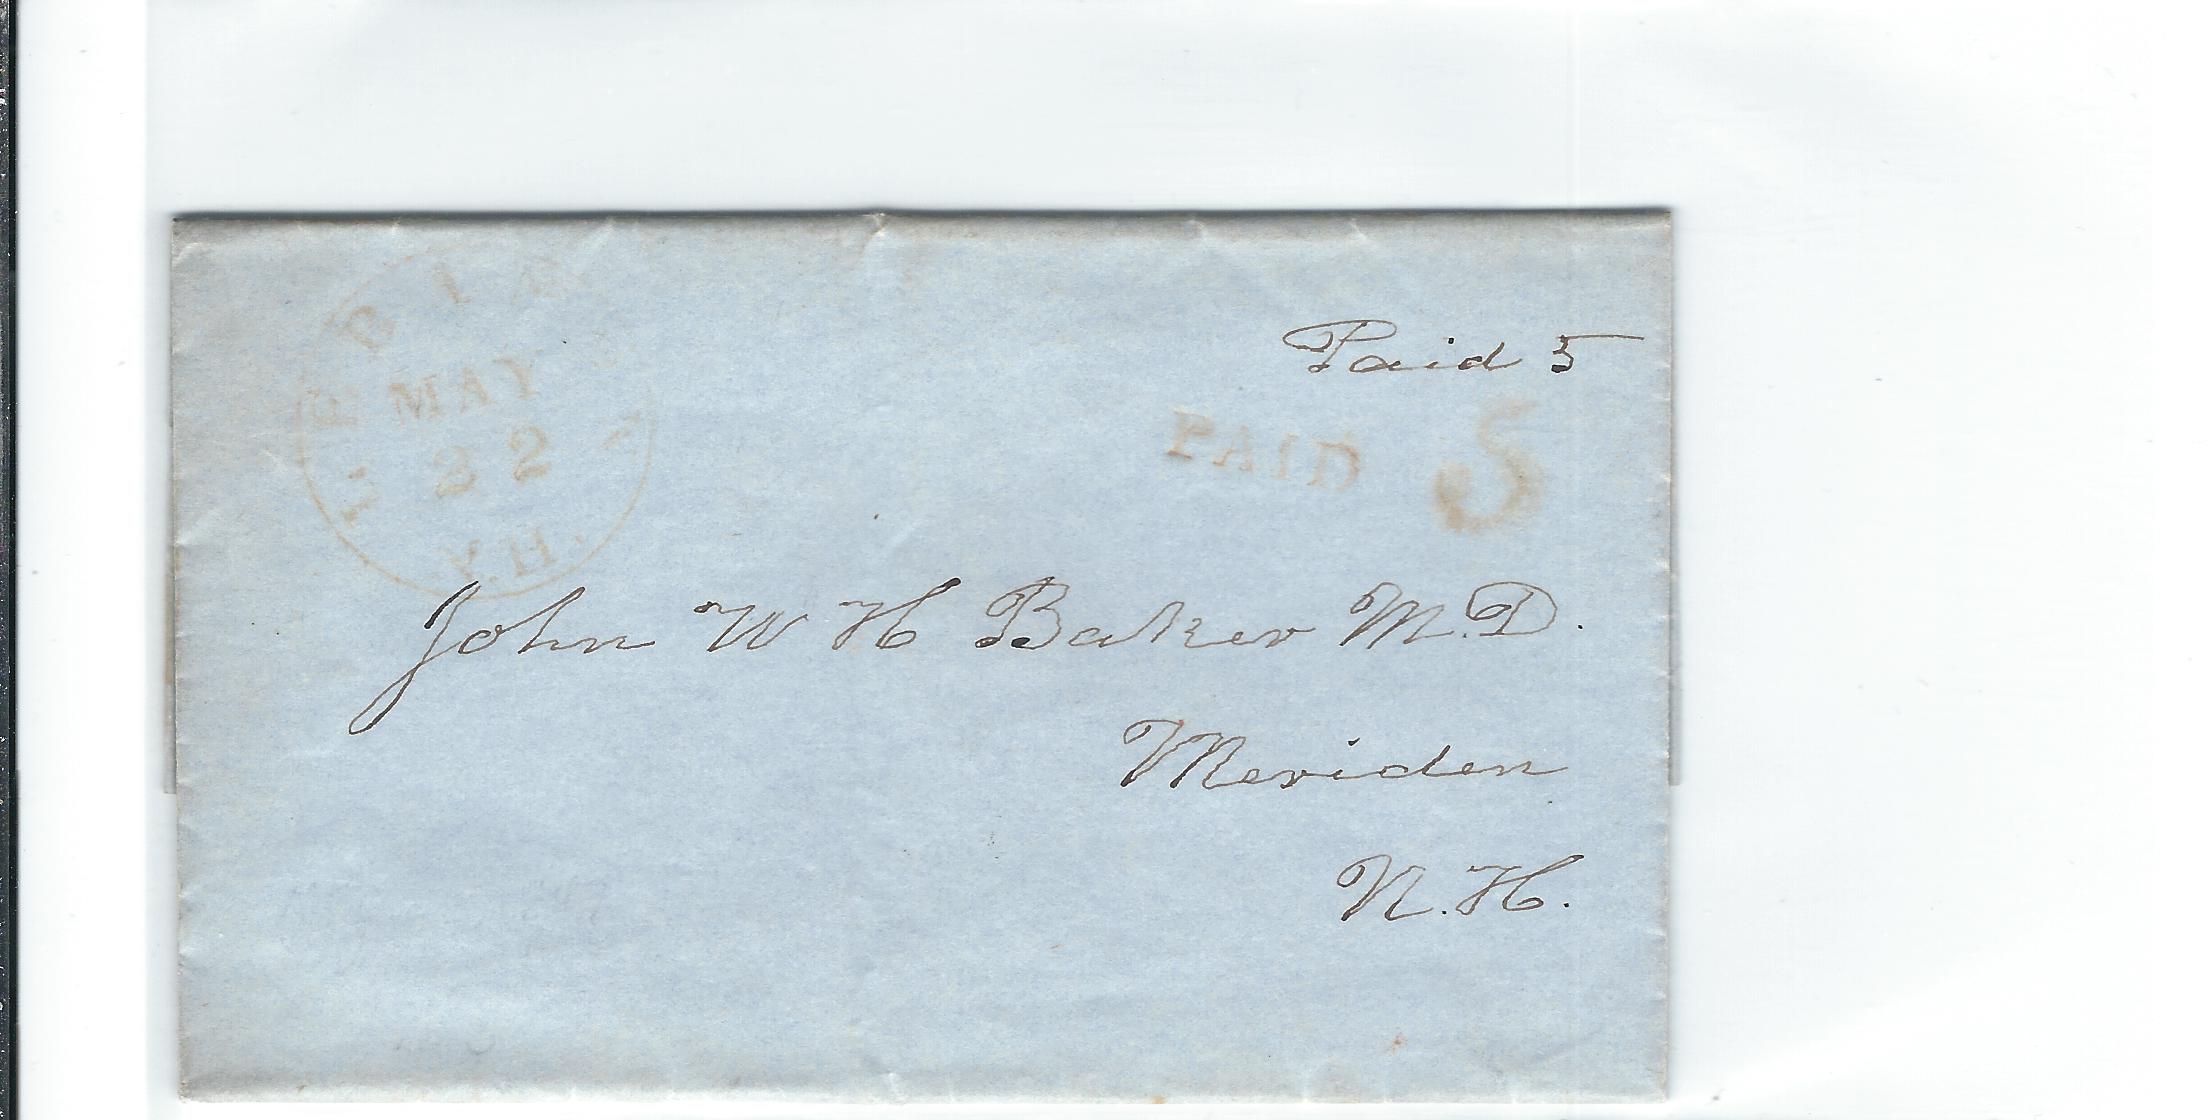 MAY
22
N.H.
Paid 5
PAID 5
John W H Baker M.D.
Meriden
N.H.